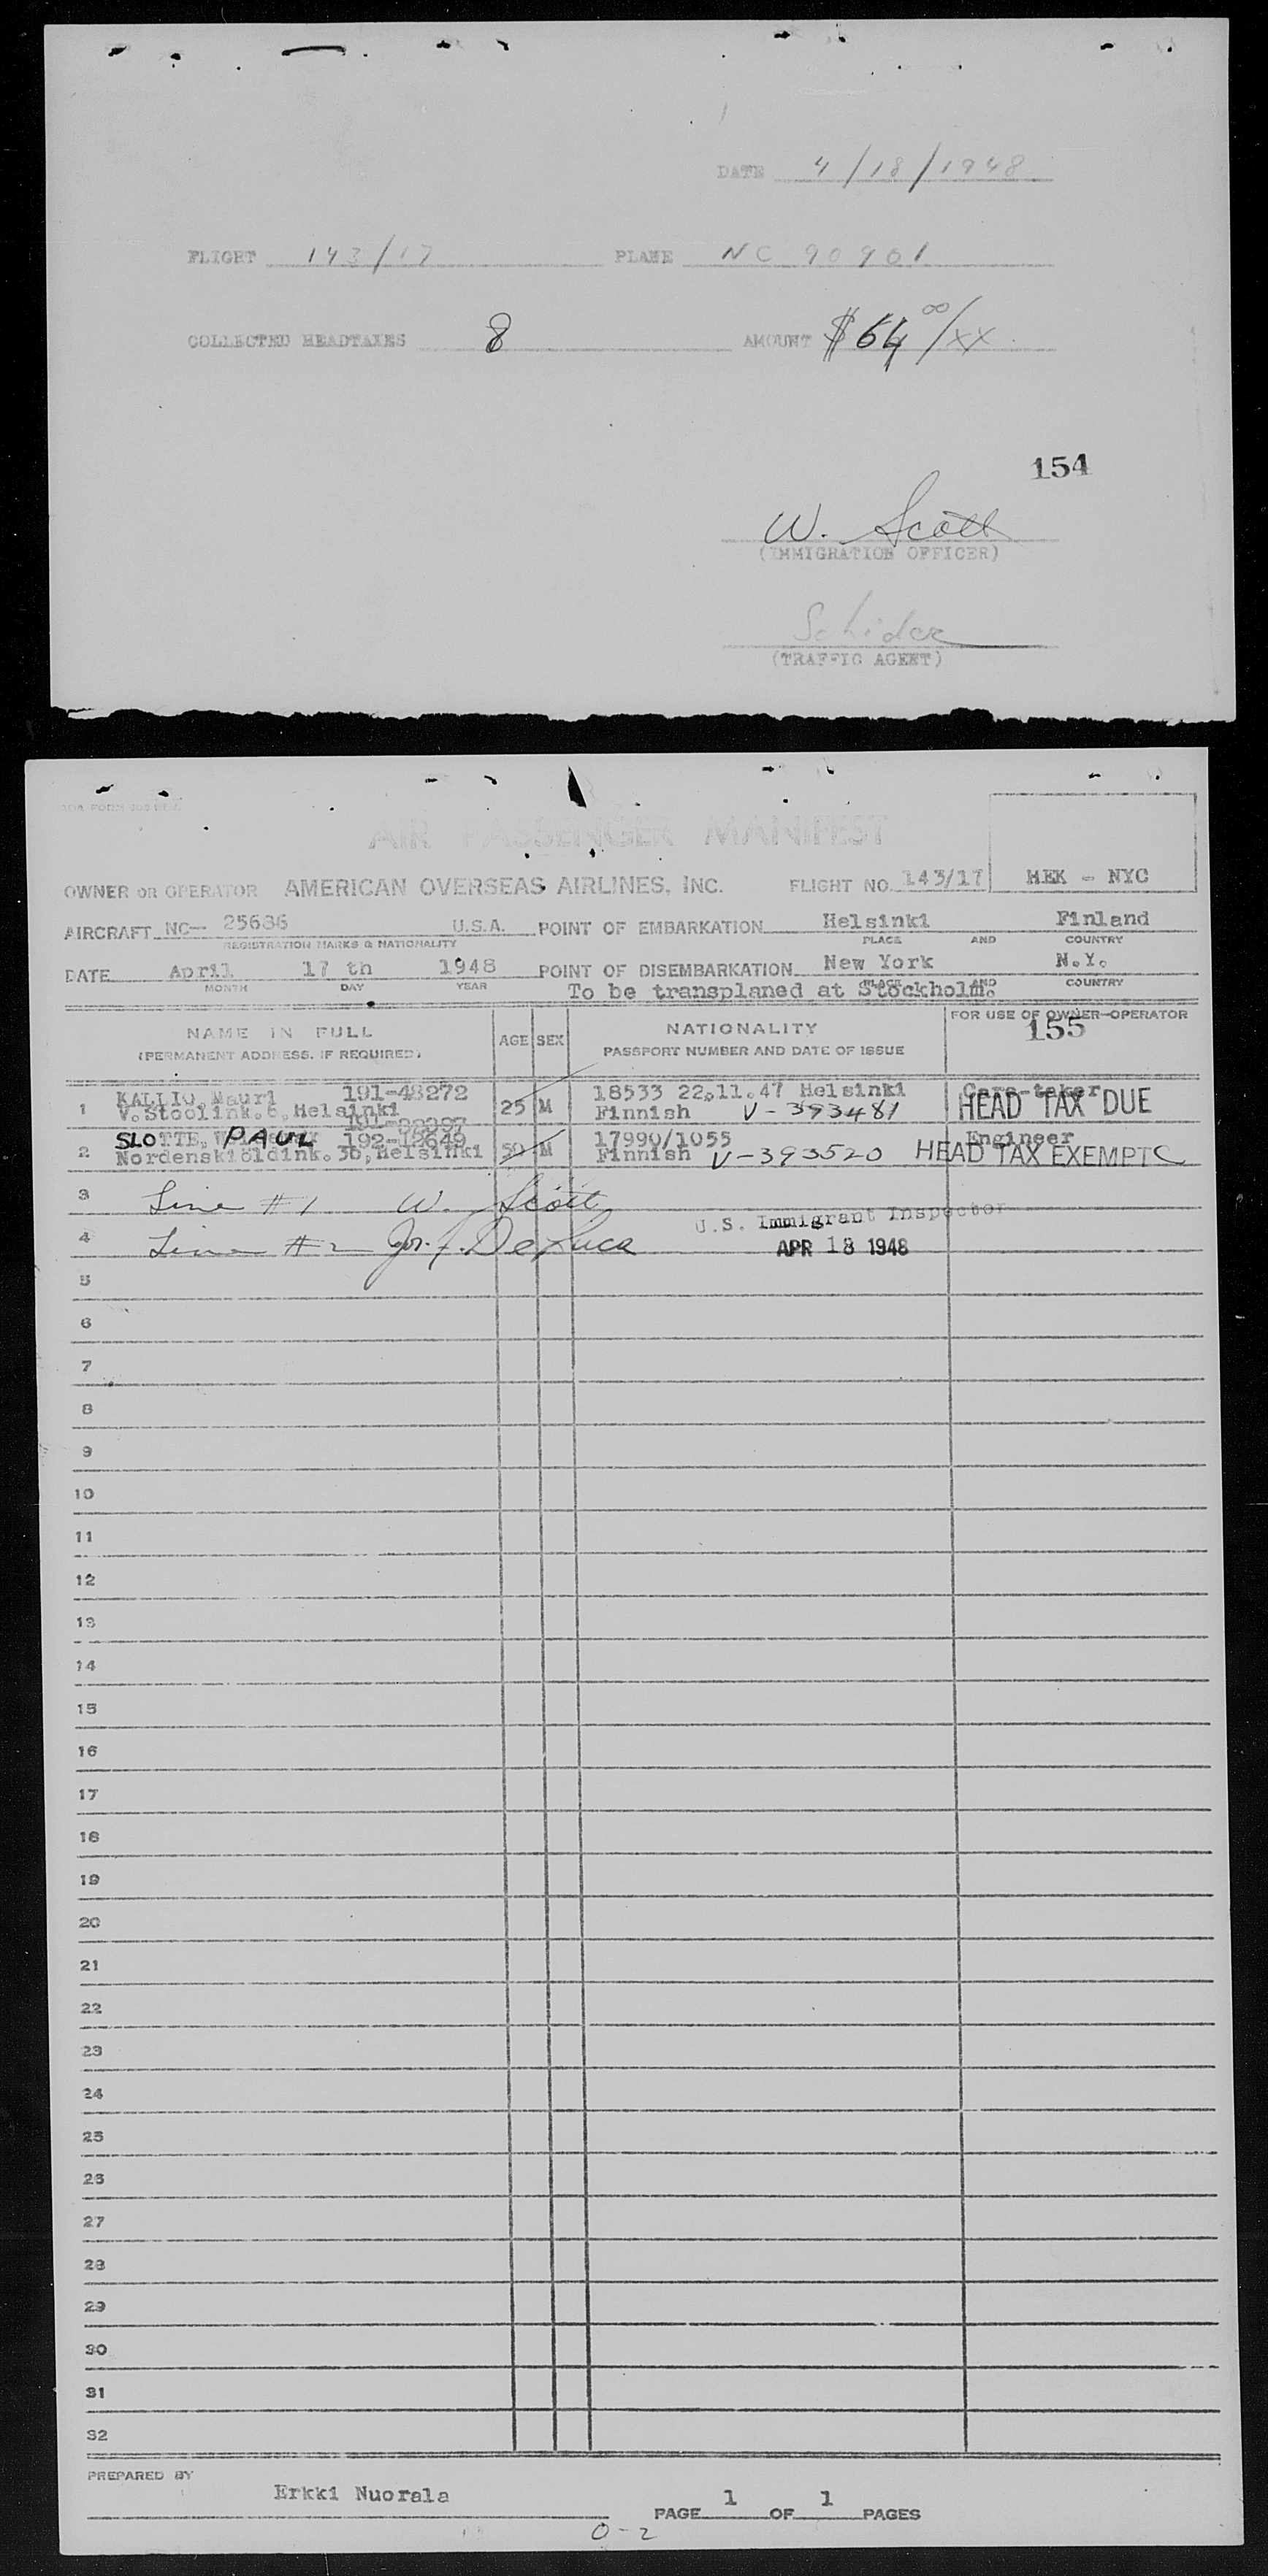 DATE 4/18/1948
FLIGHT 143/17 PLANE NC 90901
COLLECTED HEADTAXES 8 AMOUNT $64 00/XX
154
W. Scott
(IMMIGRATION OFFICER)
Schider
(TRAFFIC AGENT)
AIR PASSENGER MANIFEST
OWNER OR OPERATOR AMERICAN OVERSEAS AIRLINES, INC. FLIGHT NO. 143/17 HEK - NYC
AIRCRAFT NC- 25686 U.S.A. POINT OF EMBARKATION Helsinki Finland
REGISTRATION MARKS & NATIONALITY PLACE AND COUNTRY
DATE April 17 th 1948 POINT OF DISEMBARKATION New York N.Y.
MONTH DAY YEAR PLACE AND COUNTRY
To be transplaned at Stockholm.
NAME IN FULL AGE SEX NATIONALITY FOR USE OF OWNER-OPERATOR
(PERMANENT ADDRESS, IF REQUIRED) PASSPORT NUMBER AND DATE OF ISSUE 155
KALLIO, Mauri 191-48272 18533 22.11.47 Helsinki Care-taker
1 V.Stoolink.6, Helsinki 25 M Finnish V-393481 HEAD TAX DUE
SLOTTE, PAUL 192-12649 17990/1055 Engineer
2 Nordenskiöldink.36, Helsinki 50 M Finnish V-393520 HEAD TAX EXEMPT C
3 Line #1 W. Scott
U.S. Immigrant Inspector
4 Line #2 Jos. J. DeLuca APR 18 1948
5
6
7
8
9
10
11
12
13
14
15
16
17
18
19
20
21
22
23
24
25
26
27
28
29
30
31
32
PREPARED BY
Erkki Nuorala
PAGE 1 OF 1 PAGES
0-2